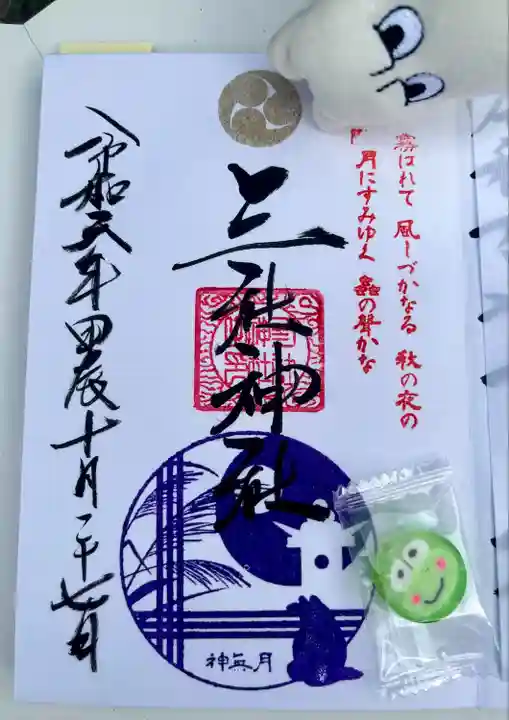 霧はれて 風しづかなる 秋の夜の
月にすみゆく 蟲の聲かな
三社神社
令和六年甲辰十月二十七日
神無月